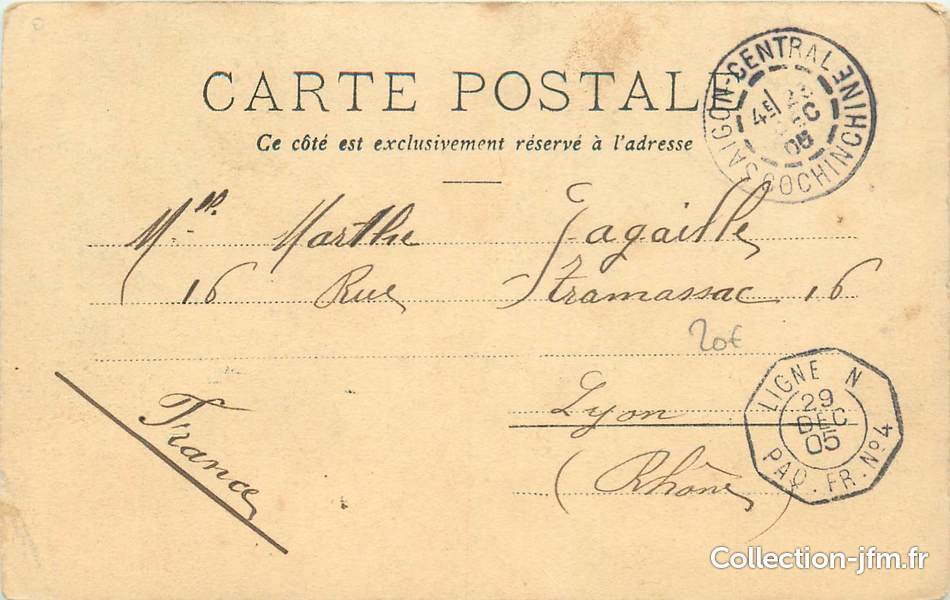 CARTE POSTALE
Ce côté est exclusivement réservé à l'adresse
SAIGON-CENTRAL
4E DEC 05
COCHINCHINE
Mlle Marthe Jagaille
16 Rue Tramassac 16
20€
Lyon
(Rhône)
France
LIGNE N
29
DEC
05
PAQ. FR. Nº4
Collection-jfm.fr